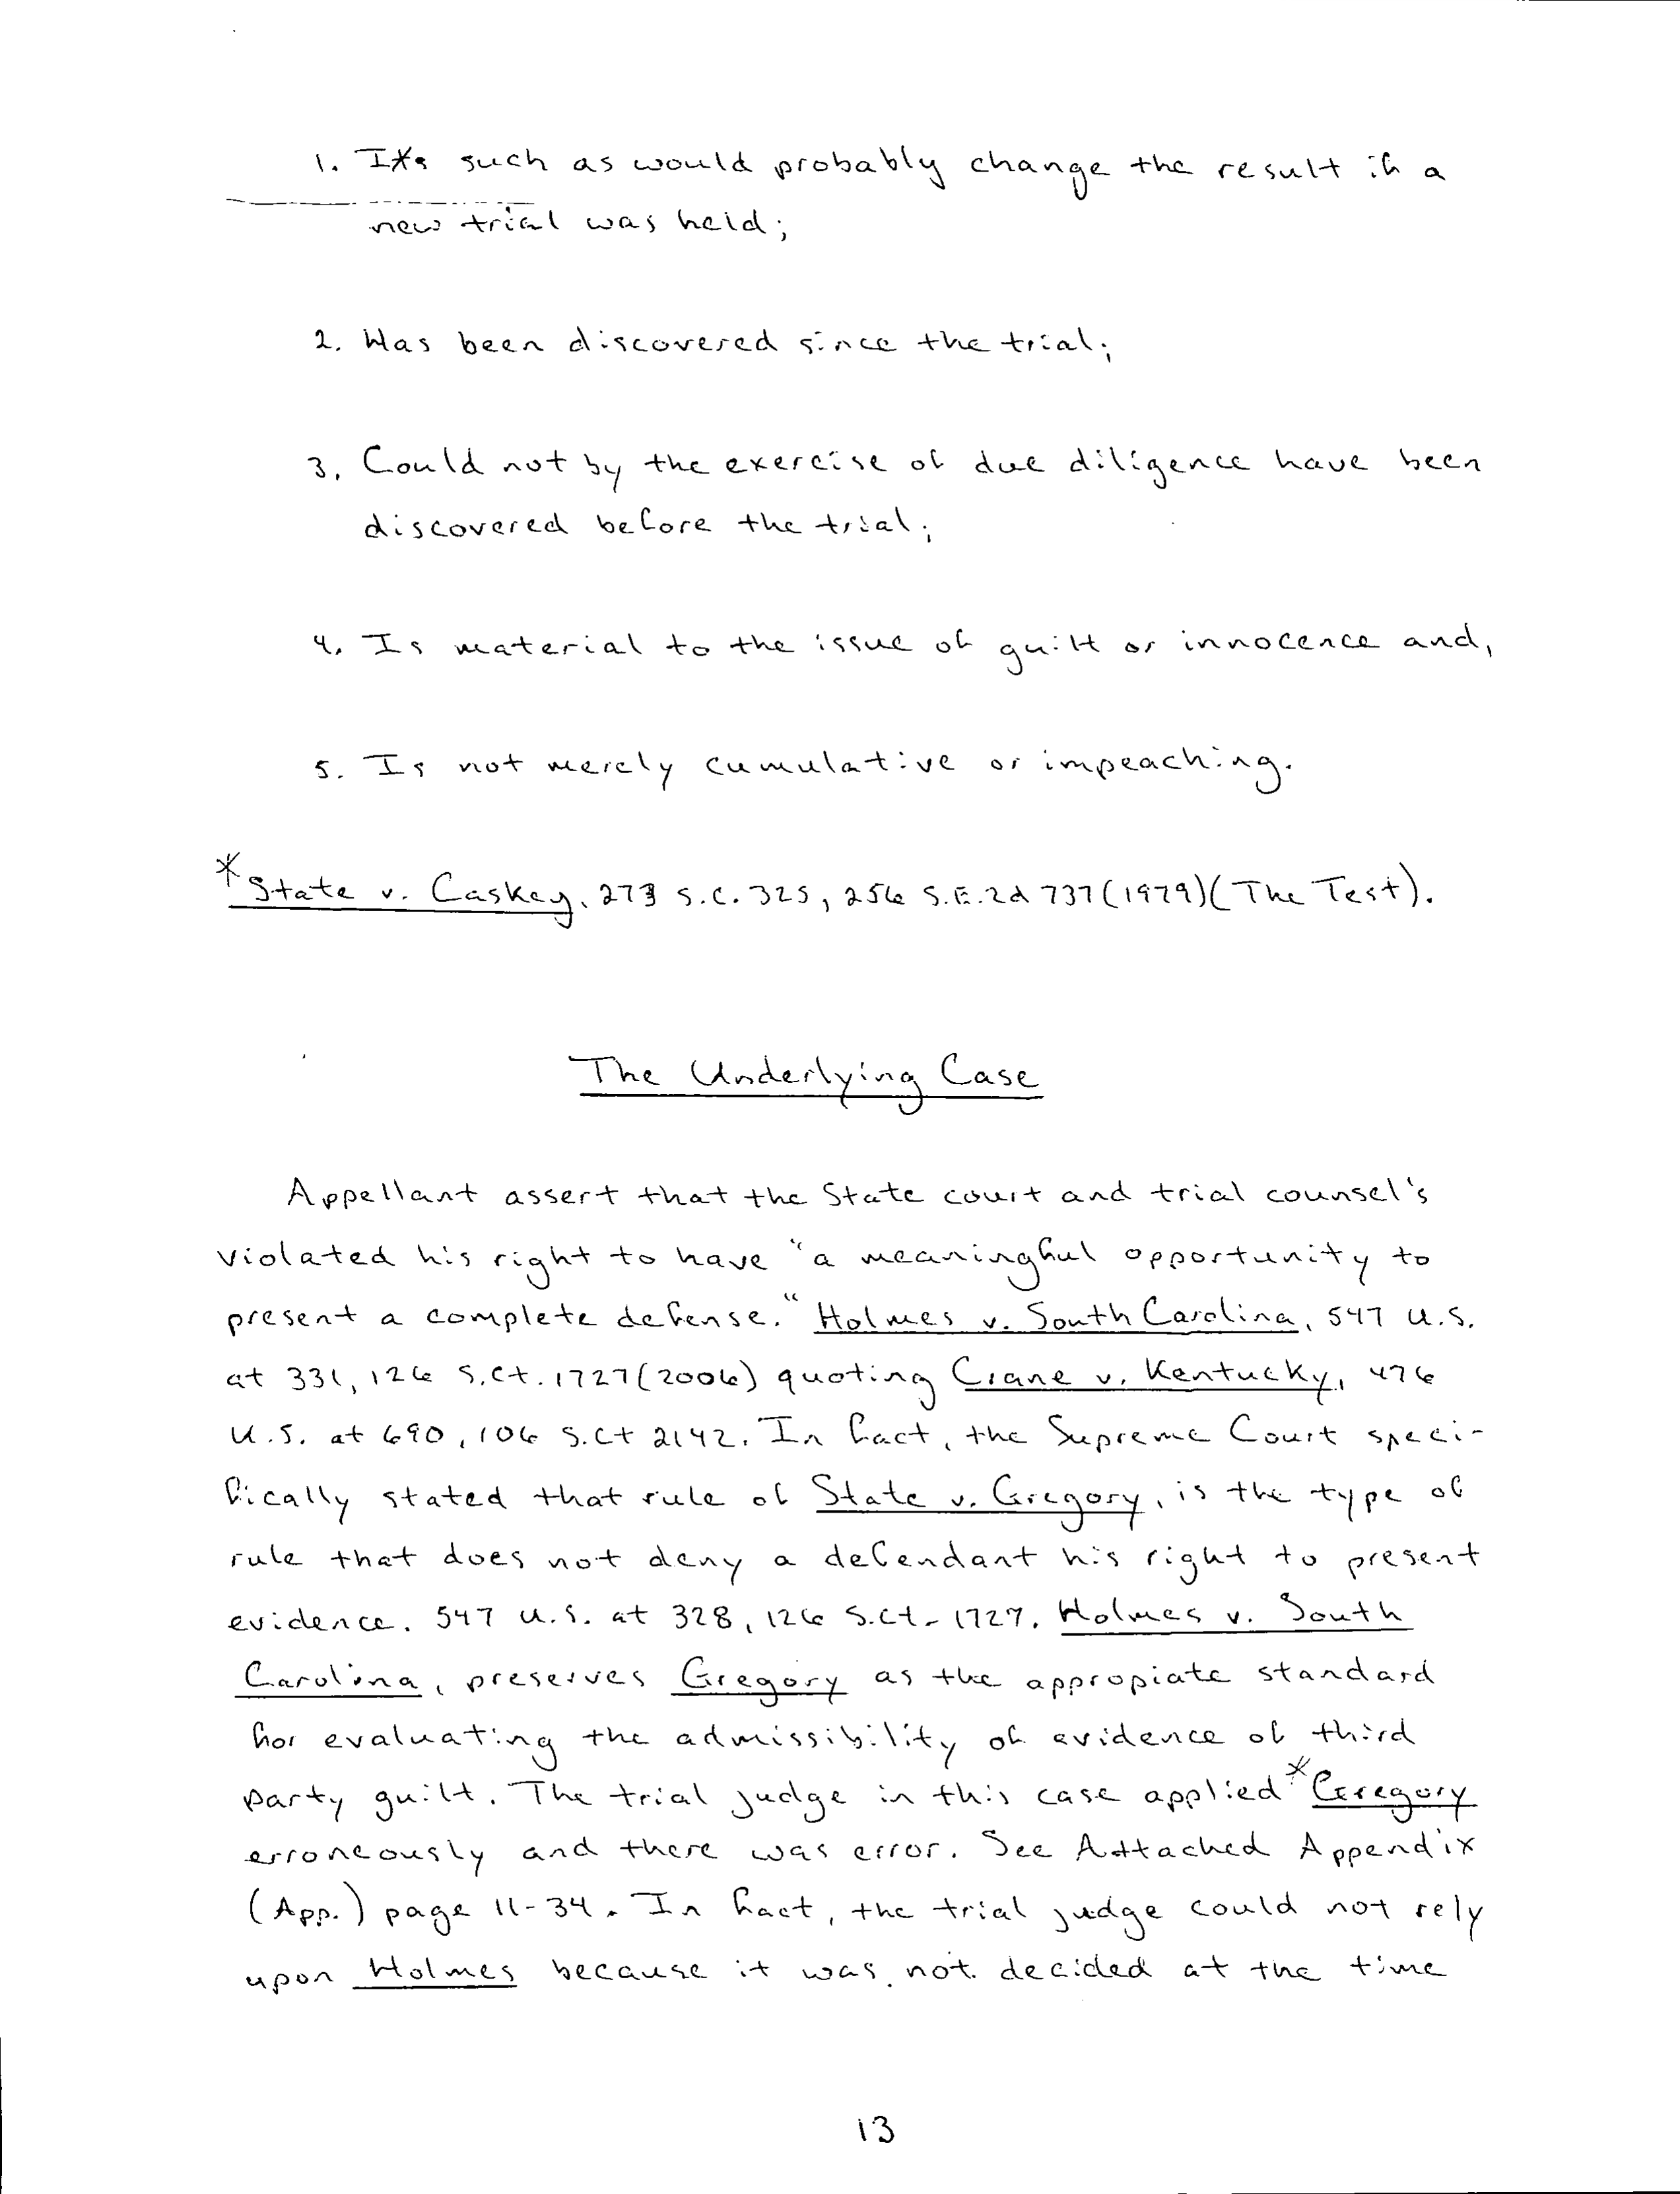 1. Its such as would probably change the result if a
new trial was held;
2. Has been discovered since the trial;
3. Could not by the exercise of due diligence have been
discovered before the trial;
4. Is material to the issue of guilt or innocence and,
5. Is not merely cumulative or impeaching.
*State v. Caskey, 273 S.C. 325, 256 S.E.2d 737(1979)(The Test).
The Underlying Case
Appellant assert that the State court and trial counsel's
violated his right to have "a meaningful opportunity to
present a complete defense." Holmes v. South Carolina, 547 U.S.
at 331, 126 S.Ct. 1727(2006) quoting Crane v. Kentucky, 476
U.S. at 690, 106 S.Ct 2142. In fact, the Supreme Court speci-
fically stated that rule of State v. Gregory, is the type of
rule that does not deny a defendant his right to present
evidence. 547 U.S. at 328, 126 S.Ct. 1727. Holmes v. South
Carolina, preserves Gregory as the appropiate standard
for evaluating the admissibility of evidence of third
party guilt. The trial judge in this case applied *Gregory
erroneously and there was error. See Attached Appendix
(App.) page 11-34. In fact, the trial judge could not rely
upon Holmes because it was not decided at the time
13